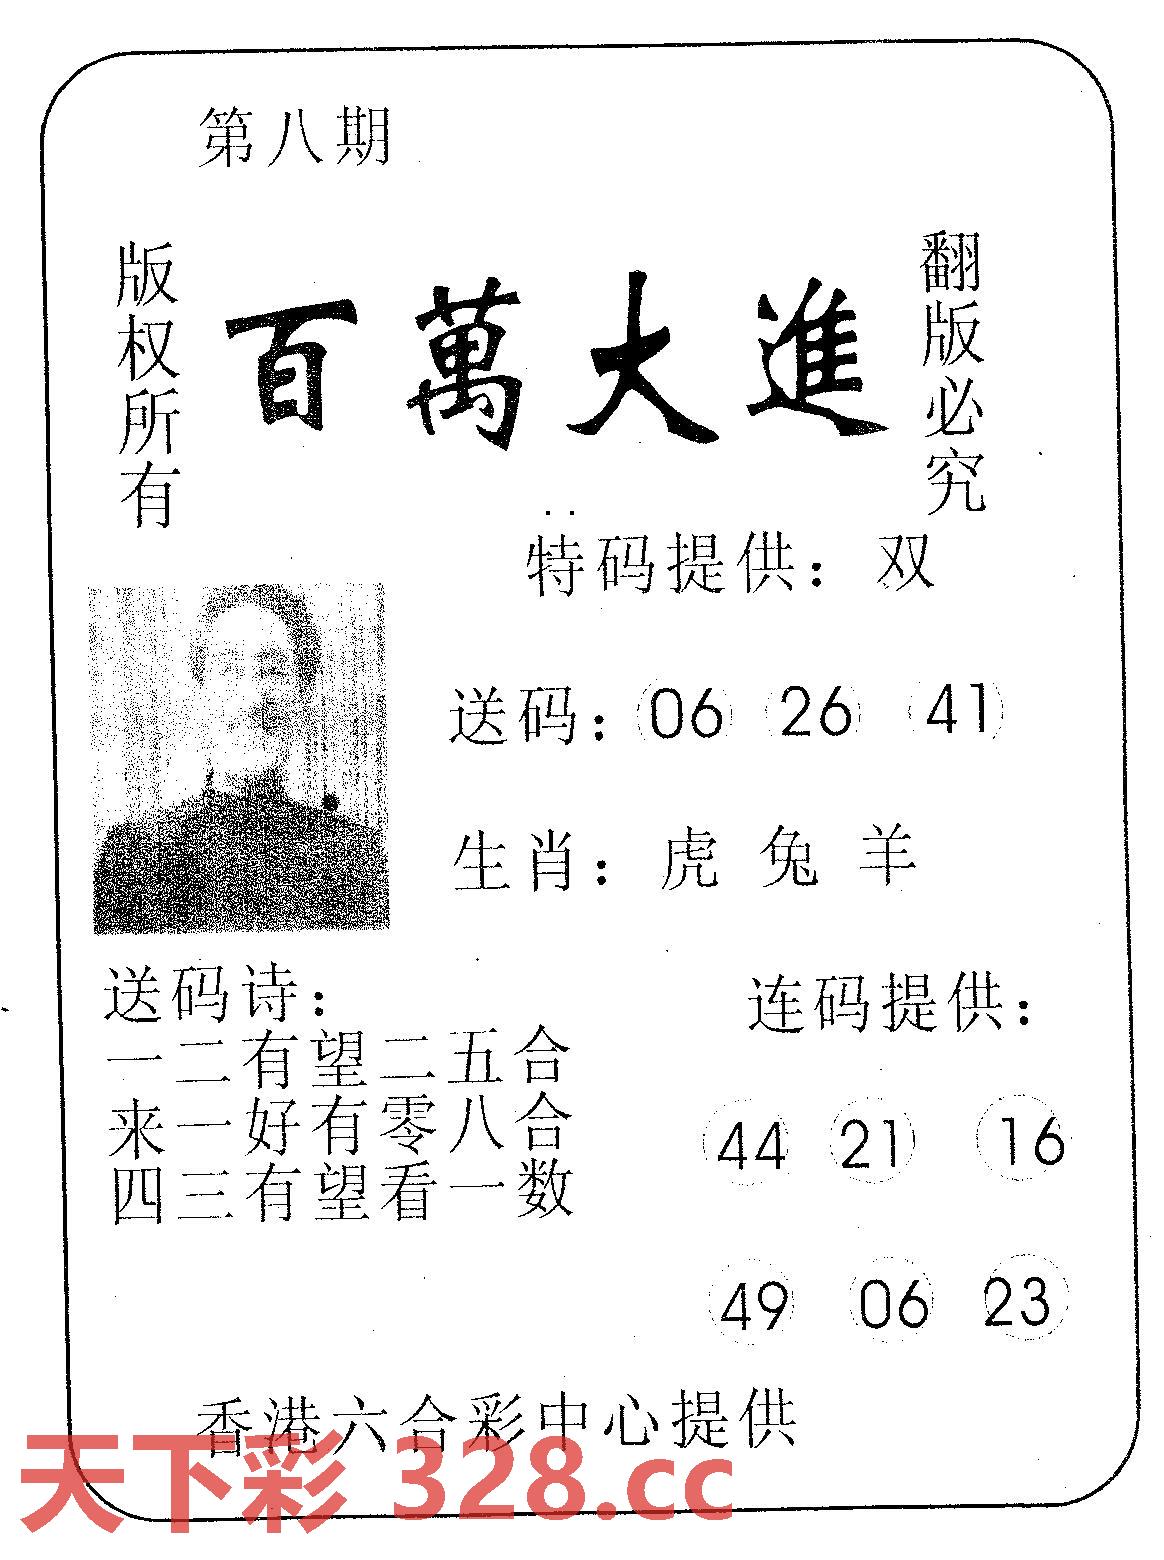 第八期
版权所有
百萬大進
翻版必究
特码提供：双
送码：06 26 41
生肖：虎 兔 羊
送码诗：
一二有望二五合
来一好有零八合
四三有望看一数
连码提供：
44 21 16
49 06 23
香港六合彩中心提供
天下彩 328.cc